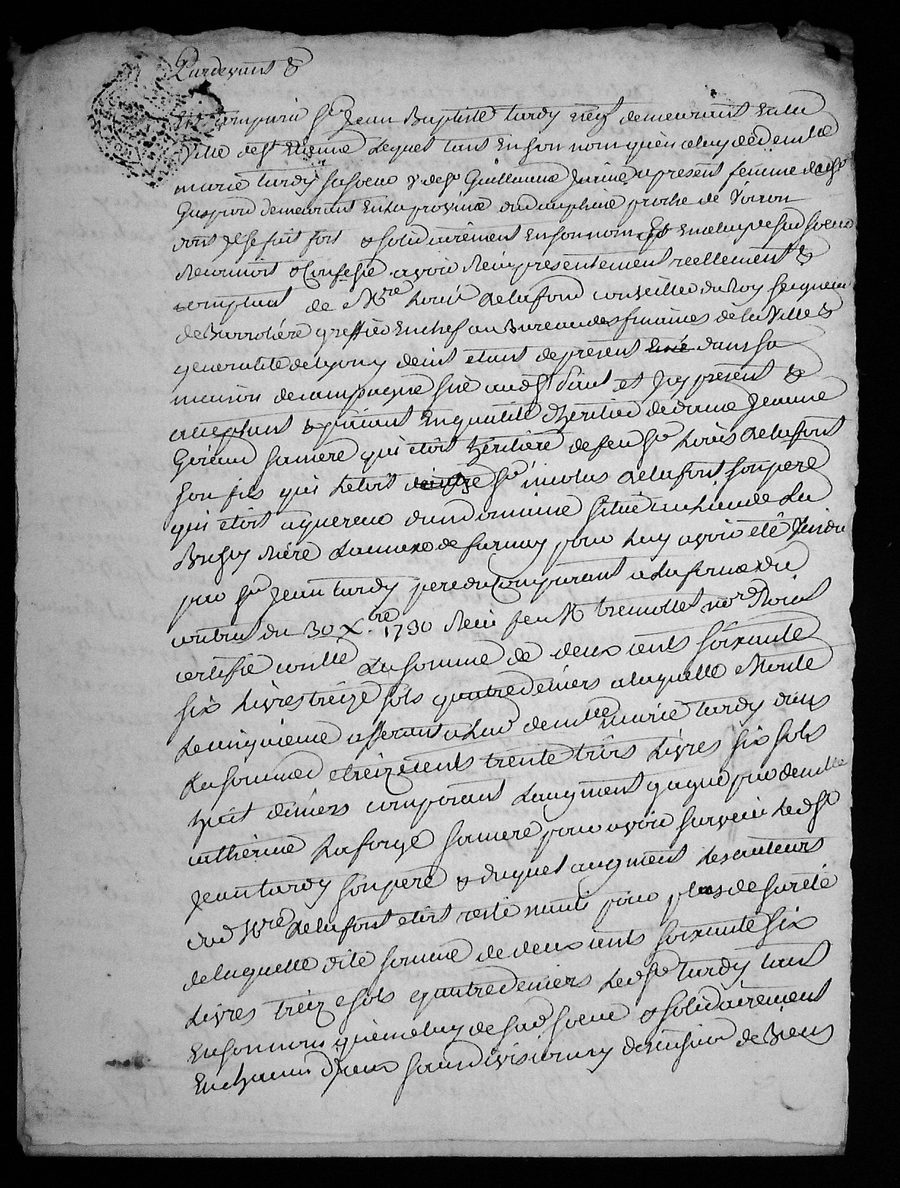 Pardevant &
Est comparu Sr. Jean Baptiste tardy neg̃t demeurant en la
Ville de St. Etienne Lequel tant En son nom qu'en celuy de demlle
marie tardy sa soeur v̄e de Sr. Guillaume a present femme de Sr.
Gaspard demeurant En la province du dauphiné proche de Voiron
dont Jl se fait fort & solidairement En son nom Et En celuy de sad soeur
Reconnoit & Confesse avoir Reçu présentement réellement &
comptant de Mre Louis delafond conseiller du Roy Seigneur
de Barroliére greffier En chef au Bureau des finances de la Ville &
generalité de Lyon y demt etant de présent dans sa
maison de campagne size aud St. et Jcy présent &
acceptant & paiant En qualité d'héritier de dame Jeanne
sa mere qui etoit héritière de feu Sr. Loüis delaffont
son fils qui L'etoit de Sr. nicolas delafont son pere
qui etoit aquereur d'un domaine situé au Lieu de La
Riére pour Luy avoir eté Vendu
par Sr. Jean tardy pere du Comparant a La forme du
contrat du 30 Xbre 1730 Reçu feu Me tremollet nore Royal
certifié controllé La somme de deux cents soixante
six Livres treize sols quatre deniers a laquelle Monte
Le cinquieme afferant a Lad demlle marie tardy dans
La somme de treize cents trente trois Livres six sols
huit deniers composant L'augment gagné par demlle
catherine Laforge sa mere pour avoir survecu Led Sr.
Jean tardy son pere & duquel augment Les auteurs
dud Mre delafont etoit resté nanti pour plus de sureté
de laquelle dite somme de deux cents soixante six
Livres treize sols quatre deniers Led Sr. tardy tant
En son nom qu'en celuy de sad soeur & solidairement
L'un d'eux sans division ny discution de biens